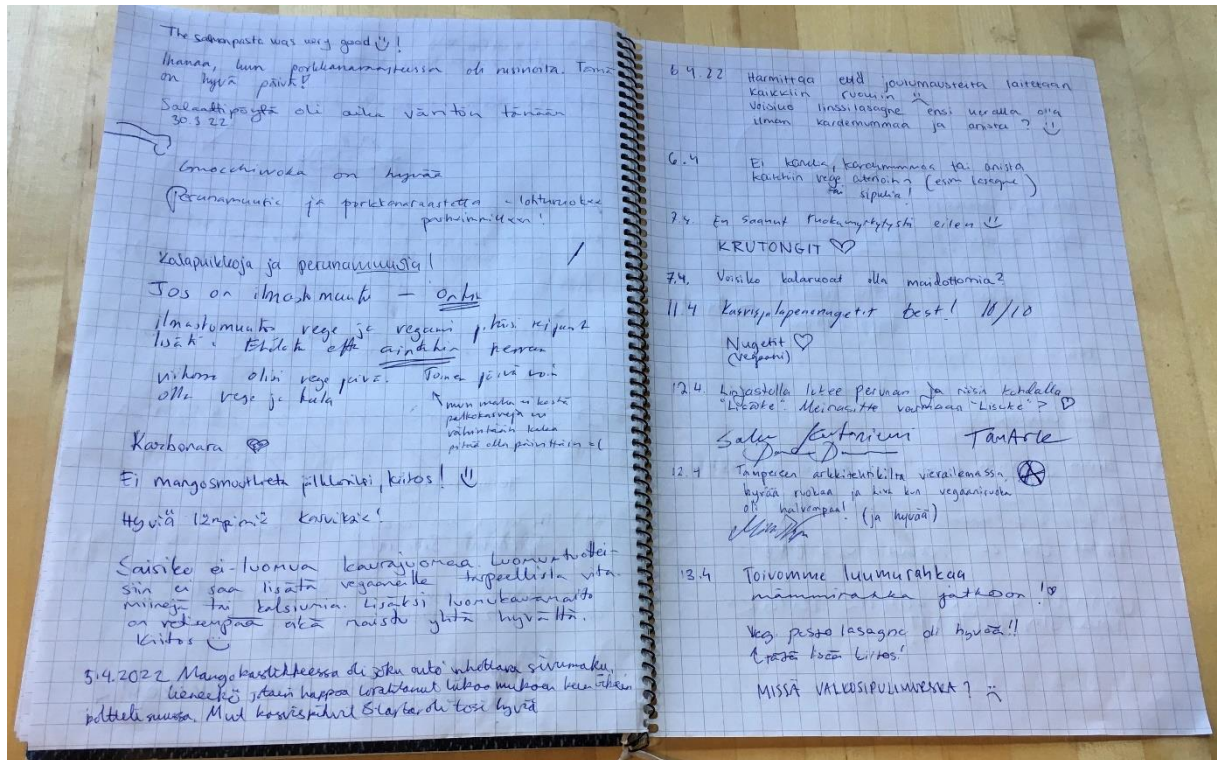 The salmonpasta was very good !
Ihanaa, kun porkkanaraasteessa oli rusinoita. Tämä
on hyvä päivä!
Salaattipöytä oli aika väritön tänään
30.3.22
Gnocchiwokki on hyvää
Perunamuusia ja porkkanaraastetta = lohturuokaa
parhaimmillaan!
Kalapuikkoja ja perunamuusia!
Jos on ilmastomuutos
ilmastomuutos vege ja vegaani pitäisi
lisätä. Ehdotan että ainakin kerran
viikossa olisi vege päivä. Toinen päivä voisi
olla vege ja kala
mun maha ei kestä
palkokasveja
vähintään kalaa
pitää olla päivittäin =(
Karbonara
Ei mangosmoothieta jälkkäriksi, kiitos!
Hyviä lämpimiä kasviksia!
Saisiko ei-luomua kaurajuomaa. Luomutuottei-
siin ei saa lisätä vegaaneille tarpeellista vita-
miineja tai kalsiumia. Lisäksi luomukauramaito
on vetisempää eikä maistu yhtä hyvältä.
Kiitos
5.4.2022 Mangokastikkeessa oli joku outo sivumaku,
jotain happoa liikaa mukaan
poltteli suussa. Mut oli tosi hyvää
6.4.22 Harmittaa että joulumausteita laitetaan
kaikkiin ruokiin
Voisiko linssilasagne ensi kerralla olla
ilman kardemummaa ja anista?
6.4 Ei kaardemummaa tai anista
kaikkiin vege aterioihin (esim lasagne)
tai sipulia!
7.4. En saanut ruokamyrkytystä eilen
KRUTONGIT
7.4. Voisiko kalaruoat olla maidottomia?
11.4 Kasvisjalapenonugetit best! 10/10
Nugetit
(vegaani)
12.4. Linjastolla lukee perunan ja riisin kohdalla
"Lisäke". Meinasitte varmaan "Lisuke"?
TamArk
12.4 Tampereen arkkitehtikilta vierailemassa
hyvää ruokaa ja kiva kun vegaaniruoka
oli halvempaa! (ja hyvää)
13.4 Toivomme luumurahkaa
mämmirahka jatkoon!
Veg pesto lasagne oli hyvää!!
tätä lisää kiitos!
MISSÄ VALKOSIPULIMURSKA?